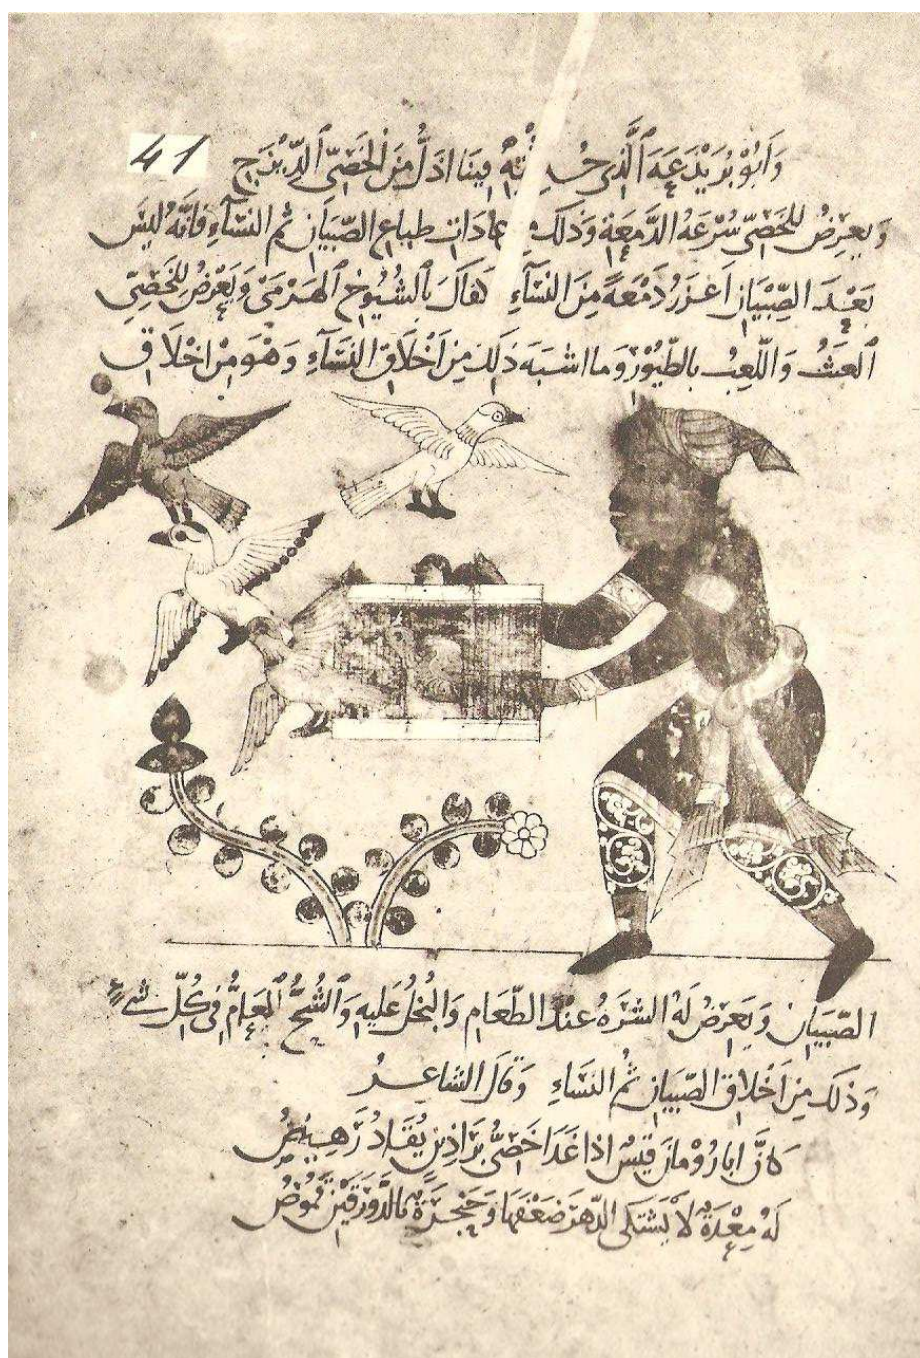 41
وَأَبُو بُرَيْدَعَةَ ٱلَّذِى فِينَا اَذَلُّ مِنَ الْخَصِىّ ٱلدِّيْزَجِ
وَيَعرِضُ لِلخَصِىّ سُرْعَة الدَّمعَةِ وَذَلِكَ مِن عادَاتِ طِباعِ الصِّبيَانِ ثُم النسَآءِ فَانَّه لَيسَ
بَعْدَ الصِّبْيَانِ اَغزَرُ دَمْعَةً مِنَ النسَآءِ كَفَاكَ بِالشُّيُوخِ الهَرْمَى وَيَعْرِضُ لِلخَصِىِّ
ٱلعَبَثُ وَاللَّعِبُ بالطُّيُوْرِ وَما اشبَهَ ذَلِكَ مِن اَخْلَاقِ النسَآءِ وَهْوَ مِنْ اخْلَاقِ
الصّبيَانِ وَيَعرِضُ لَهُ الشرَهُ عندَ الطّعَامِ وَالبُخلُ عَلَيهِ وَٱلشُّحُّ العَامُّ فِى كُلِّ شَىءٍ
وَذَلكَ مِن اَخْلَاقِ الصّبيَانِ ثُم النسَاءِ وَقَالَ الشاعِرُ
كَاَنَّ ابا رُوْمانَ قَيسًا اذا غَدَا خَصِىُّ بَرَاذِينٍ يُقَادُ رَهِيصُ
لَهُ مِعْدَةٌ لَا يَشتكِى الدّهرَ ضَعْفَهَا وَحَنجَرَةٌ بالدَّوْرَقَيْنِ قَمُوْصُ